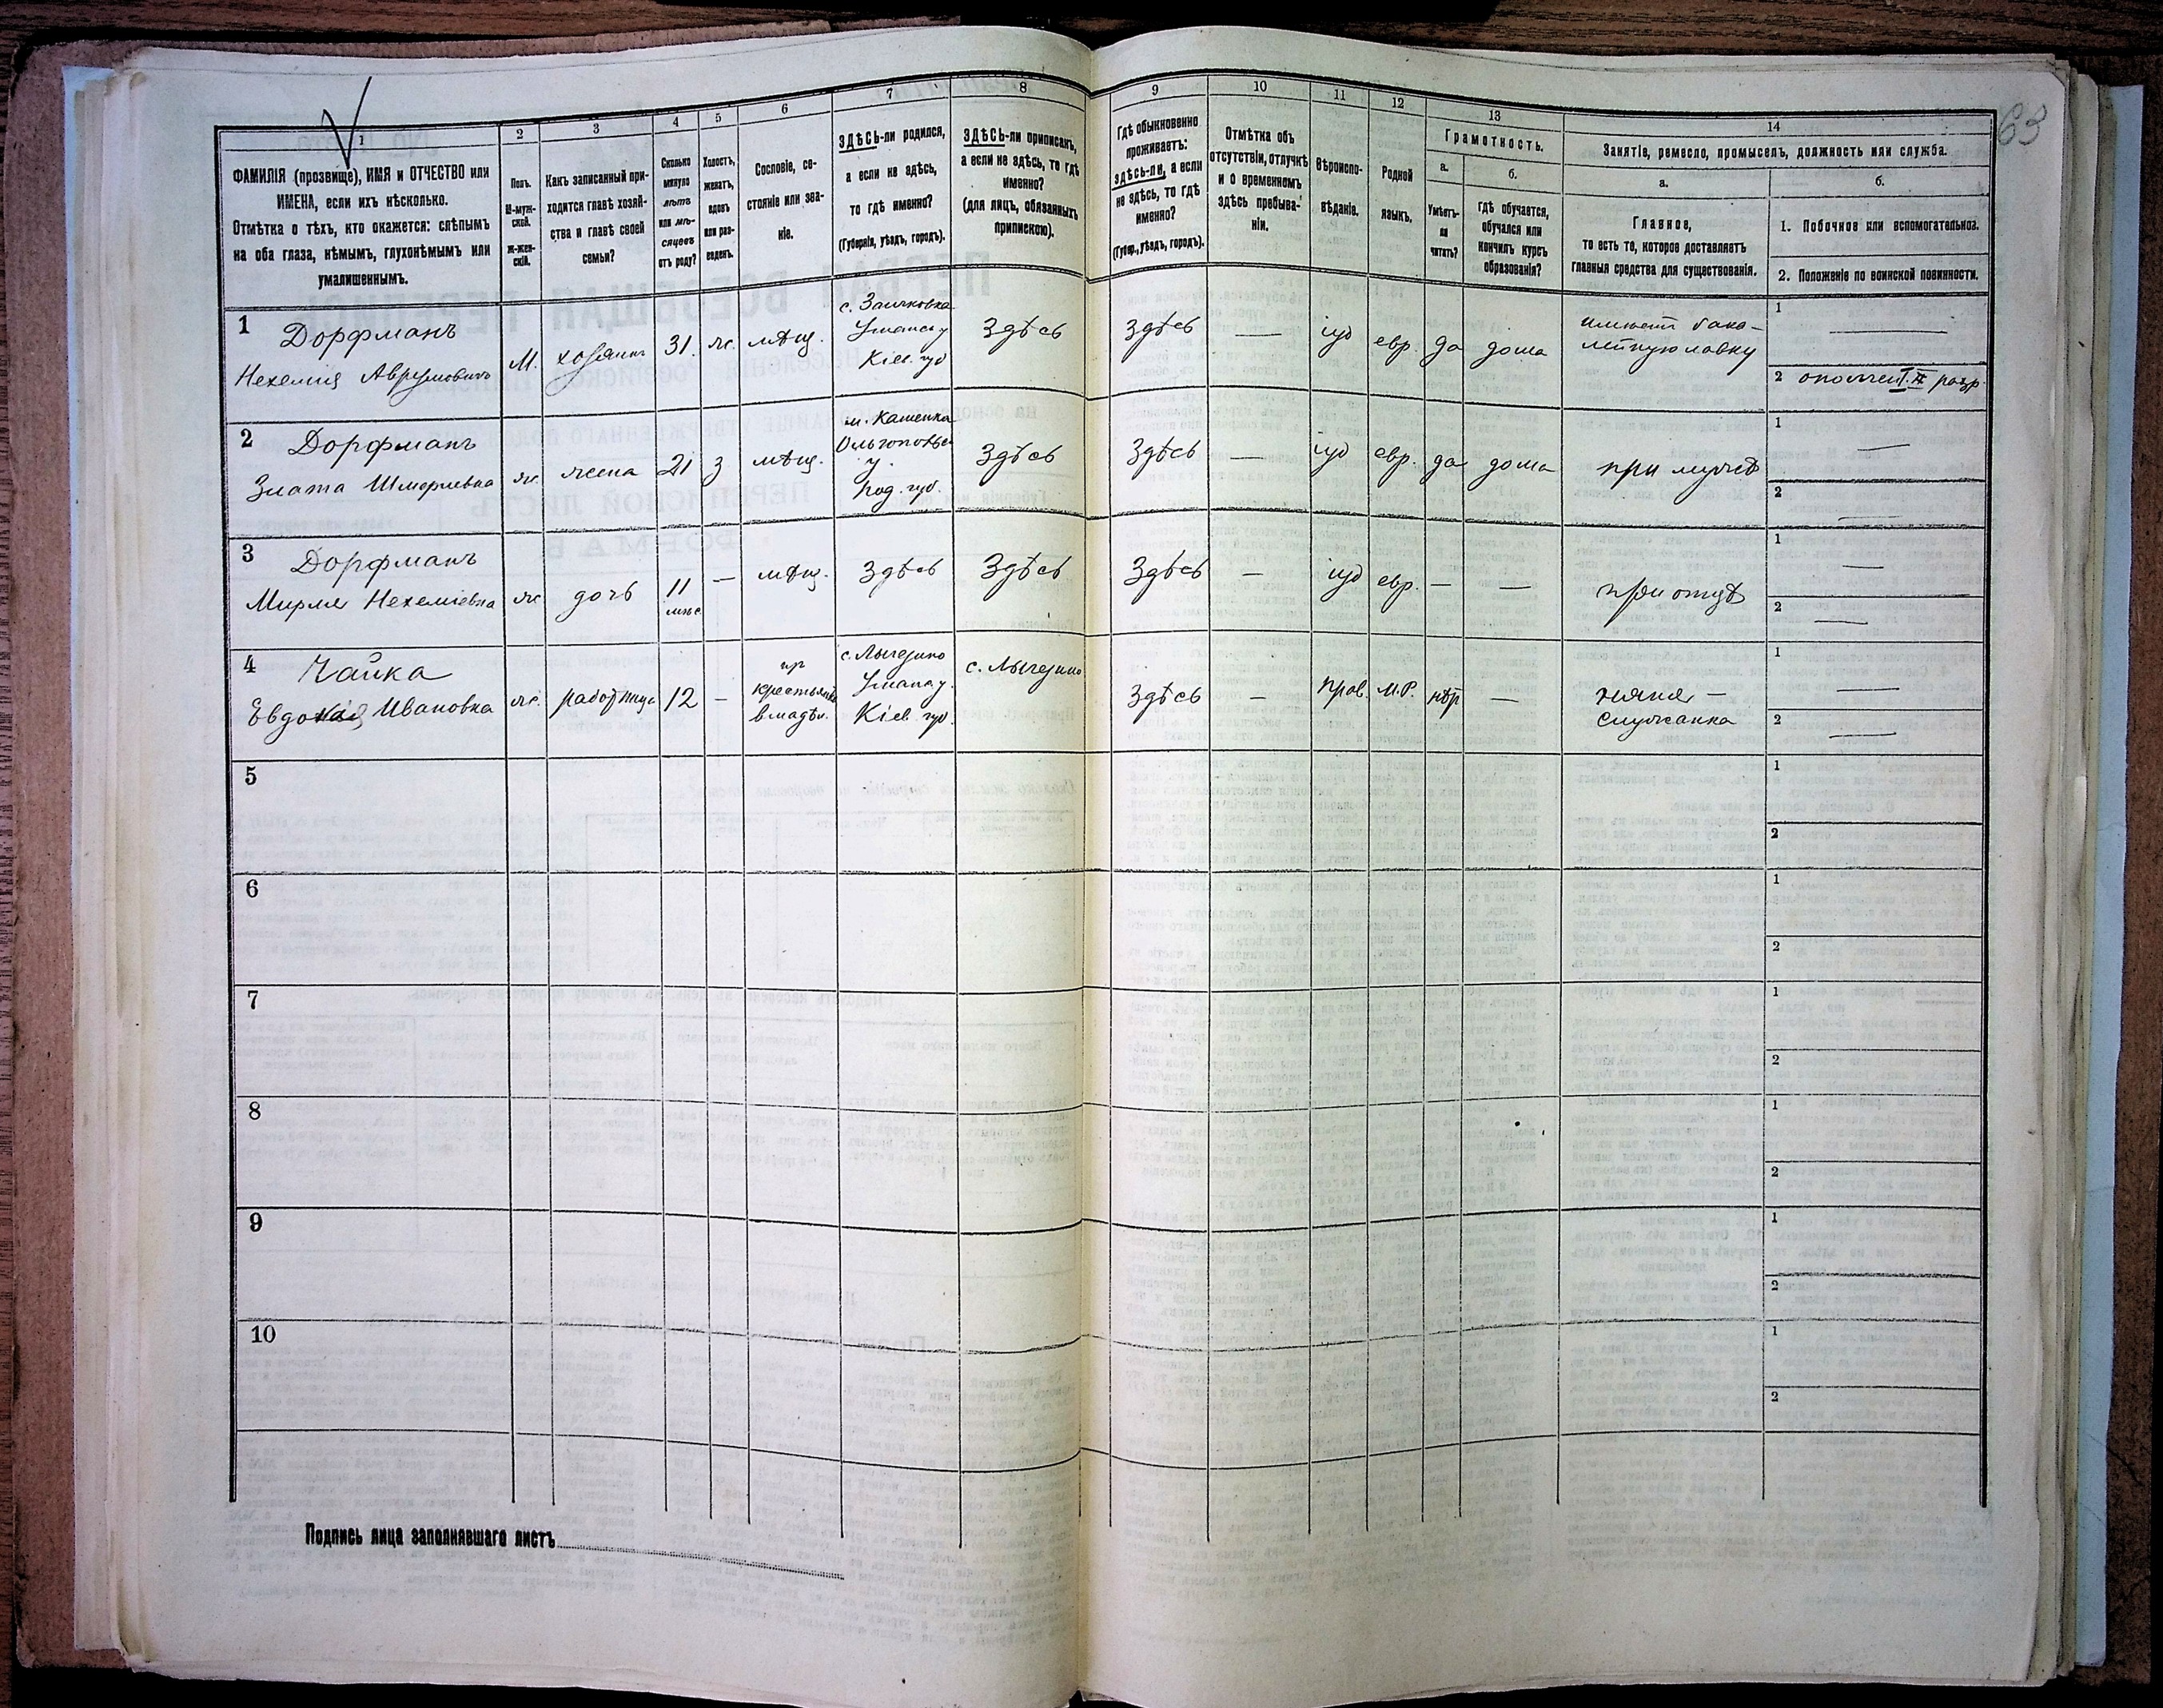 63
1
2
3
4
5
6
7
8
9
10
11
12
13
14
ФАМИЛІЯ (прозвище), ИМЯ и ОТЧЕСТВО или
ИМЕНА, если ихъ нѣсколько.
Отмѣтка о тѣхъ, кто окажется: слѣпымъ
на оба глаза, нѣмымъ, глухонѣмымъ или
умалишеннымъ.
Полъ.
М-муж-
ской.
Ж-жен-
скій.
Какъ записанный при-
ходится главѣ хозяй-
ства и главѣ своей
семьи?
Сколько
минуло
лѣтъ
или мѣ-
сяцевъ
отъ роду?
Холостъ,
женатъ,
вдовъ
или раз-
веденъ.
Сословіе, со-
стояніе или зва-
ніе.
ЗДѢСЬ-ли родился,
а если не здѣсь,
то гдѣ именно?
(Губернія, уѣздъ, городъ).
ЗДѢСЬ-ли приписанъ,
а если не здѣсь, то гдѣ
именно?
(для лицъ, обязанныхъ
припискою).
Гдѣ обыкновенно
проживаетъ:
здѣсь-ли, а если
не здѣсь, то гдѣ
именно?
(Губер., уѣздъ, городъ).
Отмѣтка объ
отсутствіи, отлучкѣ
и о временномъ
здѣсь пребыва-
ніи.
Вѣроиспо-
вѣданіе.
Родной
языкъ.
Грамотность.
а.
Умѣетъ-
ли
читать?
б.
Гдѣ обучается,
обучался или
кончилъ курсъ
образованія?
Занятіе, ремесло, промыселъ, должность или служба.
а.
Главное,
то есть то, которое доставляетъ
главныя средства для существованія.
б.
1. Побочное или вспомогательное.
2. Положеніе по воинской повинности.
1
Дорфманъ
Нехемия
М.
хозяинъ
31.
ж.
мѣщ.
Уманск у
Кіев. губ
Здѣсь
Здѣсь
—
іуд
евр.
да
дома
имѣетъ бака-
лейную лавку
1
—
2
ополчен
разр.
2
Дорфманъ
Злата
ж
жена
21
З
мѣщ.
м. Каменка
у.
Под. губ.
Здѣсь
Здѣсь
—
іуд
евр.
да
дома
при мужѣ
1
—
2
—
3
Дорфманъ
Нехеміевна
ж
дочь
11
мѣс
—
мѣщ.
Здѣсь
Здѣсь
Здѣсь
—
іуд
евр.
—
—
при отцѣ
1
—
2
—
4
Чайка
Евдокія Ивановка
ж.
работница
12
—
владѣл.
Кіев. губ.
Здѣсь
—
прав.
М.Р.
нѣт
—
няня —
служанка
1
—
2
—
5
1
2
6
1
2
7
1
2
8
1
2
9
1
2
10
1
2
Подпись лица заполнявшаго листъ